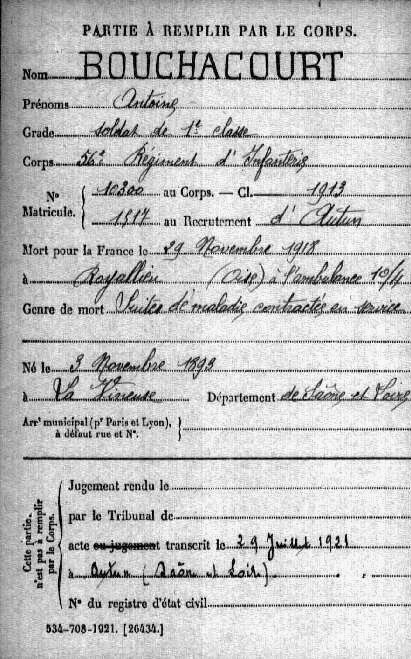 PARTIE À REMPLIR PAR LE CORPS.
Nom BOUCHACOURT
Prénoms Antoine
Grade soldat de 1e classe
Corps 56e Régiment d'Infanterie
No Matricule. { 10300 au Corps. — Cl. 1913
1517 au Recrutement d'Autun
Mort pour la France le 29 Novembre 1918
à Royallieu (Oise) à l'ambulance 10/4
Genre de mort Suites de maladie contractée en service
Né le 3 Novembre 1893
à La Vineuse Département de Saône et Loire
Arrt municipal (pr Paris et Lyon), à défaut rue et No. }
Cette partie n'est pas à remplir par le Corps. {
Jugement rendu le
par le Tribunal de
acte ou jugement transcrit le 29 Juillet 1921
à Autun (Saône et Loire)
No du registre d'état civil
534-708-1921. [26434.]